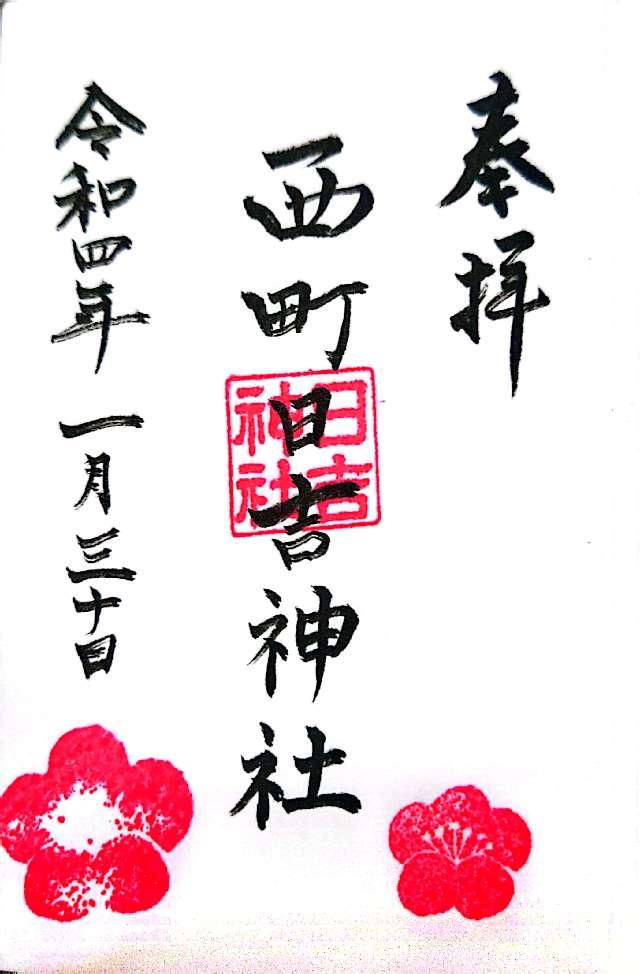 奉拝
西町日吉神社
日吉
神社
令和四年一月三十日